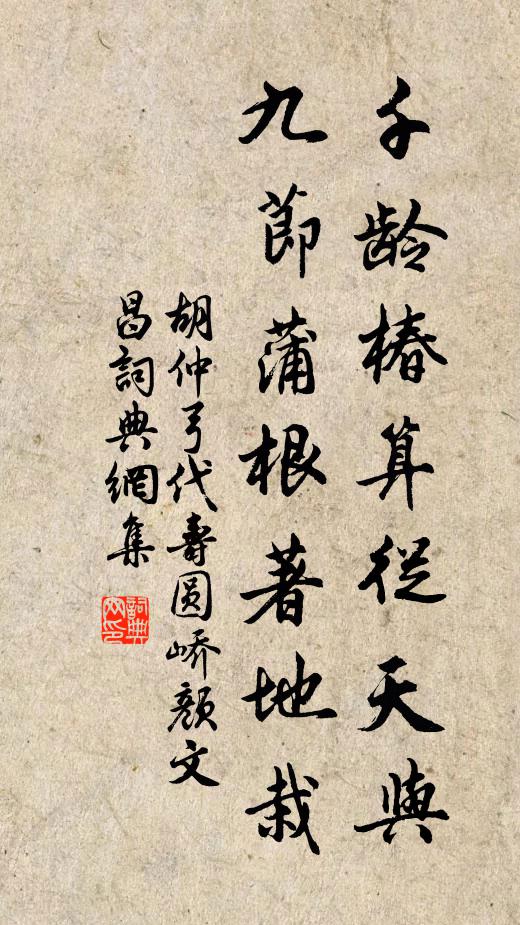 千龄椿算從天與
九節蒲根著地栽
胡仲弓代壽圓嶠顏文
昌詞典網集
詞典
网印